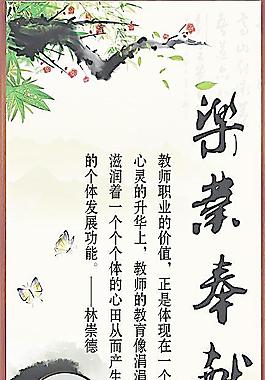 樂業奉献
教师职业的价值，正是体现在一个
心灵的升华上，教师的教育像涓涓
滋润着一个个个体的心田从而产生
的个体发展功能。——林崇德